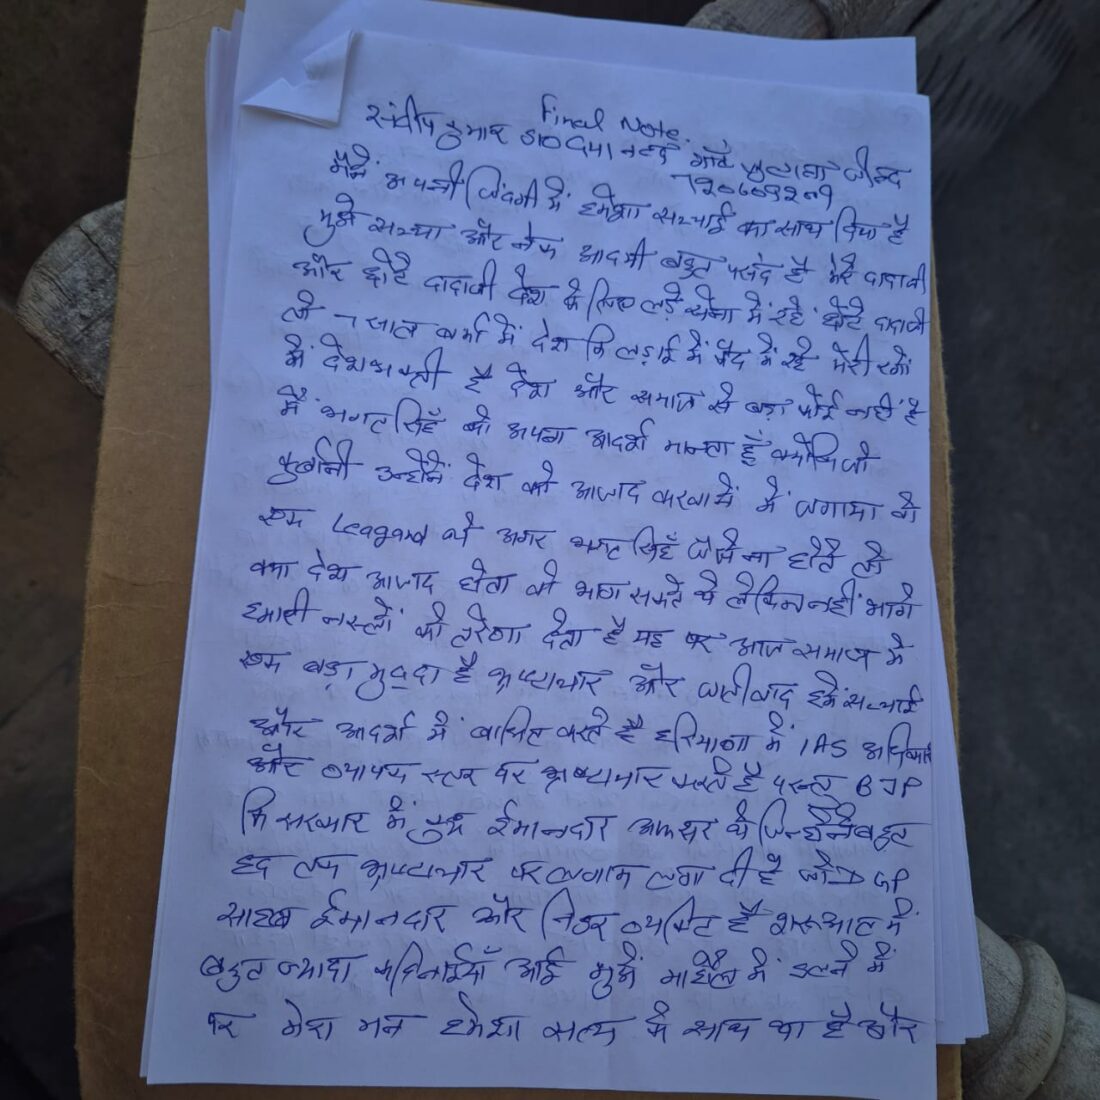 Final Note.
संदीप कुमार S/O दयानन्द गांव जुलाना जीन्द
7206092
मैंने अपनी जिंदगी में हमेशा सच्चाई का साथ दिया है
मुझे सच्चा और नेक आदमी बहुत पसंद है मेरे दादाजी
और छोटे दादाजी देश के लिए लड़े सेना में रहे छोटे दादाजी
तो 7 साल बर्मा में देश कि लड़ाई में कैद में रहे मेरी रगों
में देशभक्ती है देश और समाज से बड़ा कोई नहीं है
मैं भगत सिहँ को अपना आदर्श मानता हूँ क्योंकि जो
कुर्बानी उन्होंने देश को आजाद करवाने में लगाया वो
एक Leagand थे अगर भगत सिहँ जैसे ना होते तो
क्या देश आजाद होता वो भाग सकते थे लेकिन नहीं भागे
हमारी नस्लों को प्रेरणा देता है यह पर आज समाज में
एक बड़ा मुद्दा है भ्रष्टाचार और जातीवाद हमें सच्चाई
और आदर्श में बाधित करते है हरियाणा में IAS अधिकारी
और व्यापक स्तर पर भ्रष्टाचार करते है परन्तु BJP
कि सरकार में कुछ ईमानदार अफसर थे जिन्होंने बहुत
हद तक भ्रष्टाचार पर लगाम लगा दी है जो DGP
साहब ईमानदार और निडर व्यक्ति है शरूआत में
बहुत ज्यादा कठिनाईयाँ आई मुझे माहौल में डलने में
पर मेरा मन हमेशा सत्य के साथ था है और